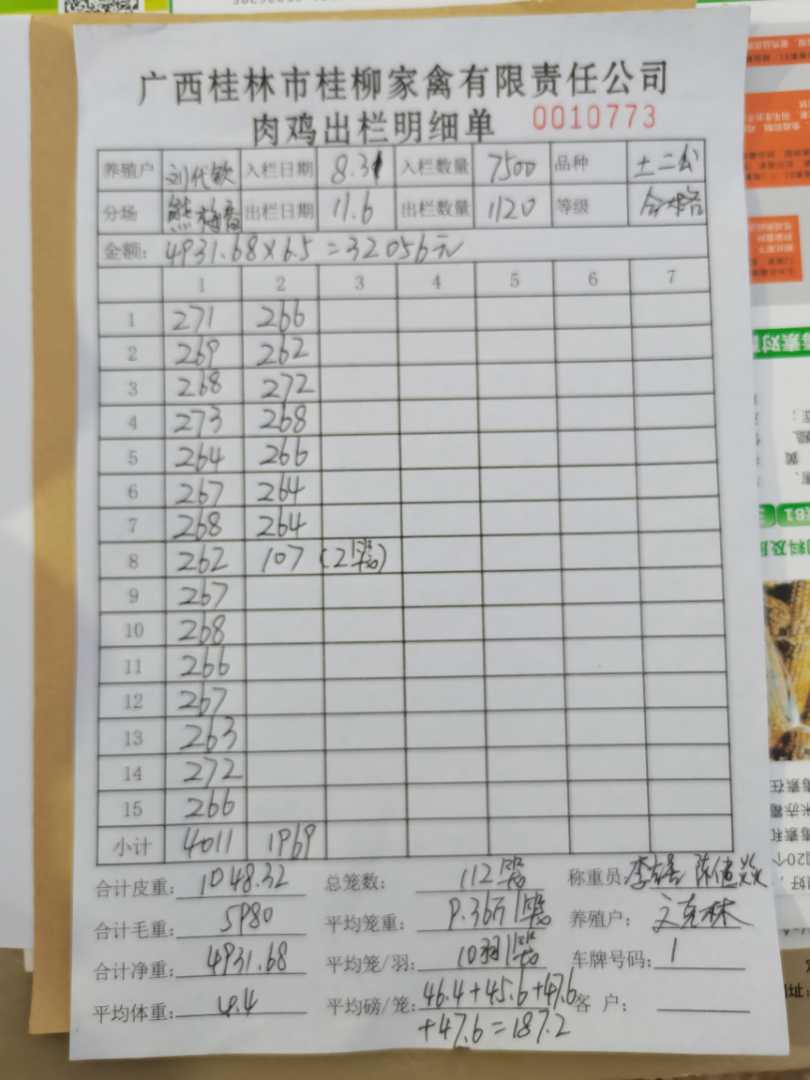 广西桂林市桂柳家禽有限责任公司
肉鸡出栏明细单 0010773
养殖户 刘代钦 入栏日期 8.31 入栏数量 7500 品种 土二公
分场 熊梅香 出栏日期 11.6 出栏数量 1120 等级 合格
金额: 4931.68×6.5=32056元
1 2 3 4 5 6 7
1 271 266
2 269 262
3 268 272
4 273 268
5 264 266
6 267 264
7 268 264
8 262 107 (2笼)
9 267
10 268
11 266
12 267
13 263
14 272
15 266
小计 4011 1969
合计皮重: 1048.32 总笼数: 112笼 称重员
合计毛重: 5980 平均笼重: 9.36斤/笼 养殖户: 文克林
合计净重: 4931.68 平均笼/羽: 10羽/笼 车牌号码: 1
平均体重: 4.4 平均磅/笼: 46.4+45.6+47.6 客户:
+47.6=187.2